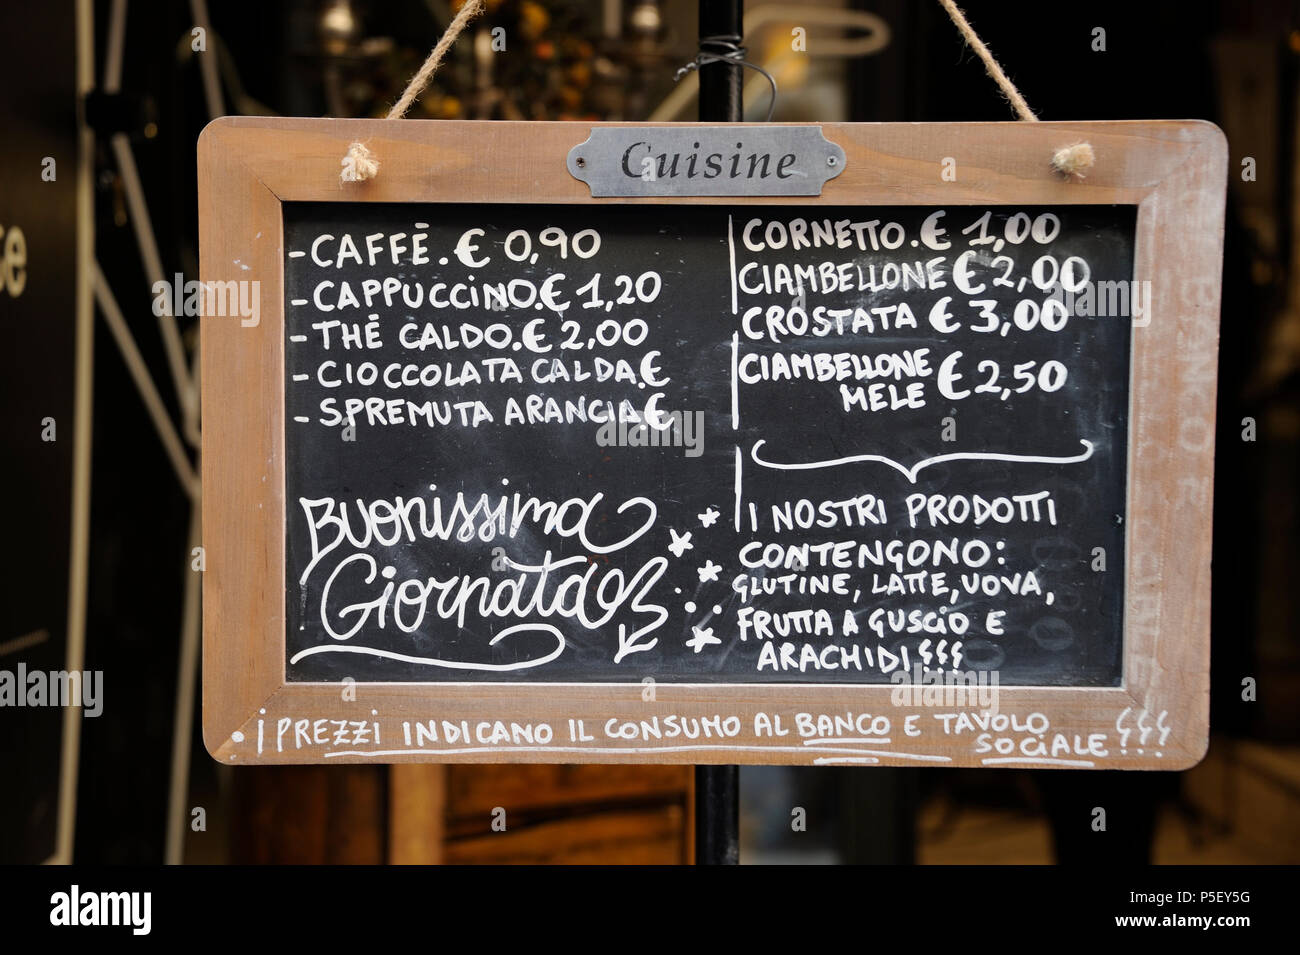 Cuisine
- CAFFÈ. € 0,90
- CAPPUCCINO. € 1,20
- THÈ CALDO. € 2,00
- CIOCCOLATA CALDA. €
- SPREMUTA ARANCIA. €
BUONISSIMA
GIORNATA
CORNETTO. € 1,00
CIAMBELLONE € 2,00
CROSTATA € 3,00
CIAMBELLONE
MELE € 2,50
I NOSTRI PRODOTTI
CONTENGONO:
GLUTINE, LATTE, UOVA,
FRUTTA A GUSCIO E
ARACHIDI!!!
• I PREZZI INDICANO IL CONSUMO AL BANCO E TAVOLO
SOCIALE!!!
alamy
Image ID: P5EY5G
www.alamy.com